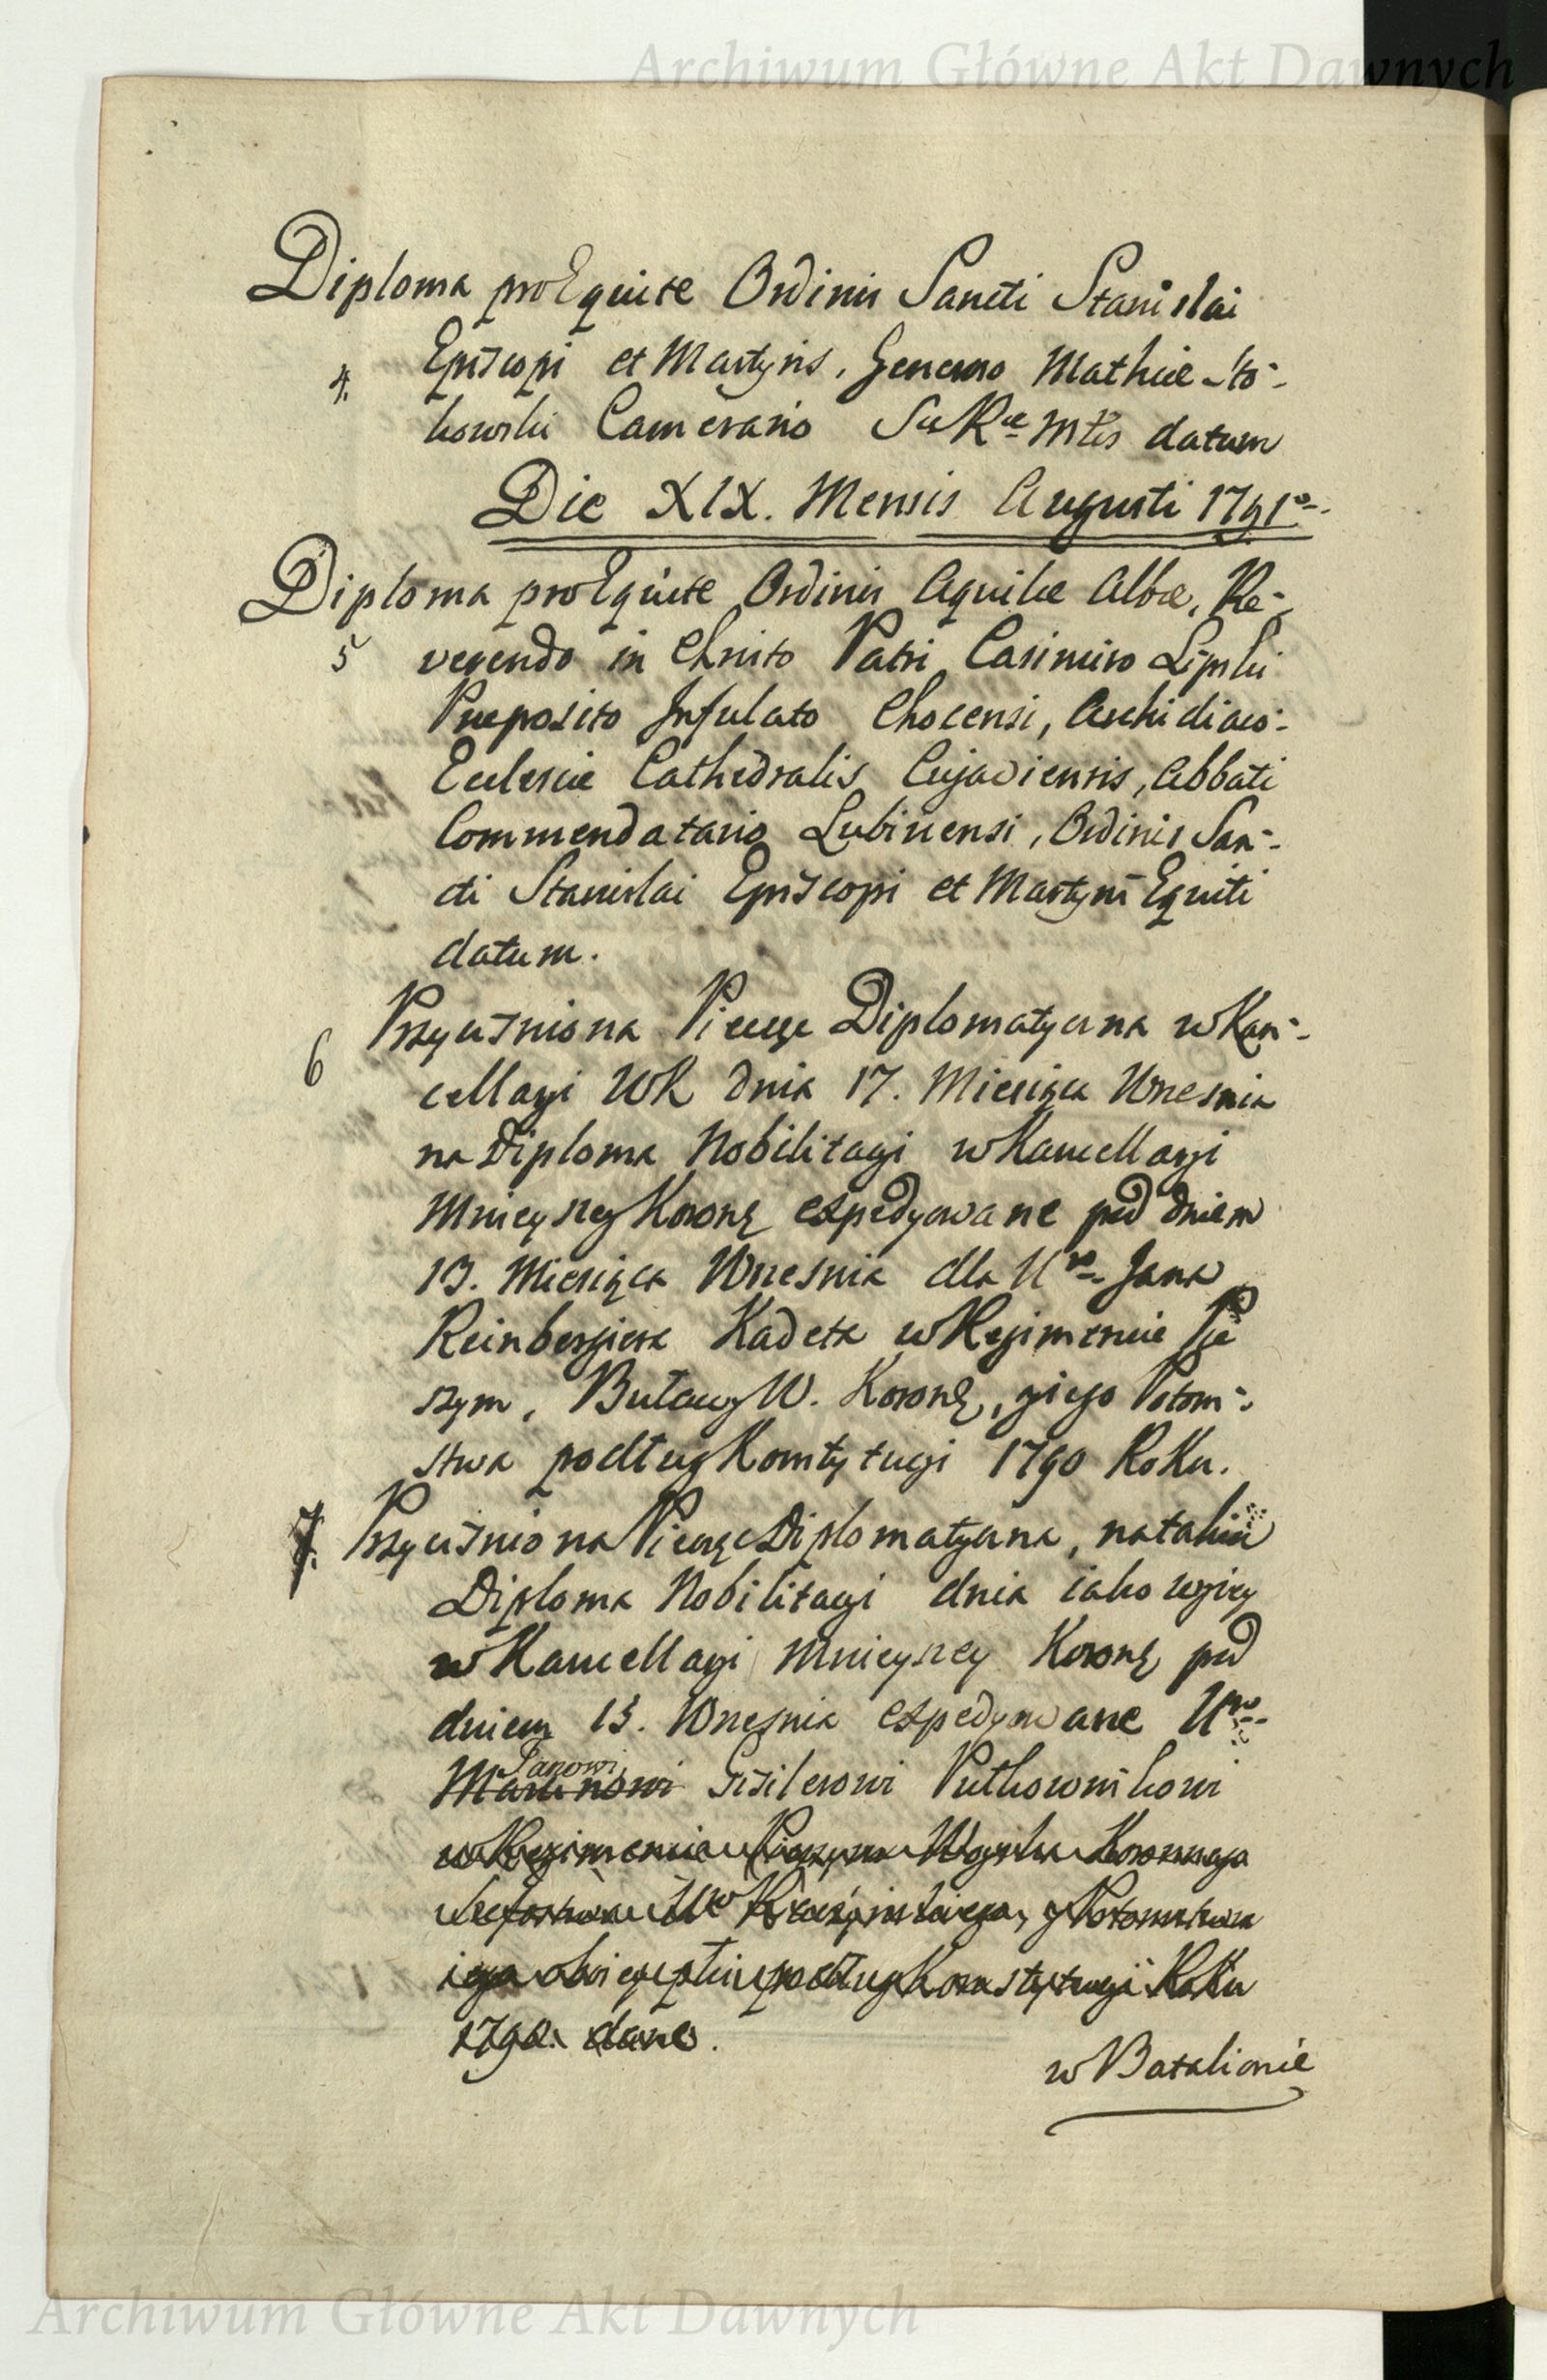 Archiwum Główne Akt Dawnych
Diploma pro Equite Ordinis Sancti Stanislai
4. Episcopi et Martyris, Generoso Mathiæ
kowski Camerario Sæ Ræ Mtis datum
Die XIX. Mensis Augusti 1791o
Diploma pro Equite Ordinis Aquilæ Albæ, Re-
5 verendo in Christo Patri Casimiro Lipski
Præposito Infulato Chocensi, Archidiaco-
Ecclesiæ Cathedralis Cujaviensis, Abbati
Commendatario Lubinensi, Ordinis San-
cti Stanislai Episcopi et Martyris Equiti
datum.
6 Przyciśniona Pieczęć Diplomatyczna w Kan-
cellaryi WK dnia 17. Miesiąca Wrzesnia
na Diploma Nobilitacyi w Kancellaryi
Mnieyszey Koronę expedyowane pod dniem
13. Miesiąca Wrzesnia dla Uro Jana
Reinbergiera Kadeta w Regimencie Pie
szym, Buławy W. Koronę, y iego Potom-
stwa podług Konstytucyi 1790 Roku.
7. Przyciśniona Pieczęć Diplomatyczna, na takiż
Diploma Nobilitacyi dnia iako wyżey
w Kancellaryi Mnieyszey Koronę pod
dniem 13. Wrzesnia expedyowane Uro
Janowi
Martinowi Gisilerowi Pułkownikowi
w Regimencie Pieszym Woyska Koronnego
Szefostwa Kraszinskiego, y Potomstwu
iego oboiey płci podług Konstytucyi Roku
1790. dane.
w Batalionie
Archiwum Główne Akt Dawnych